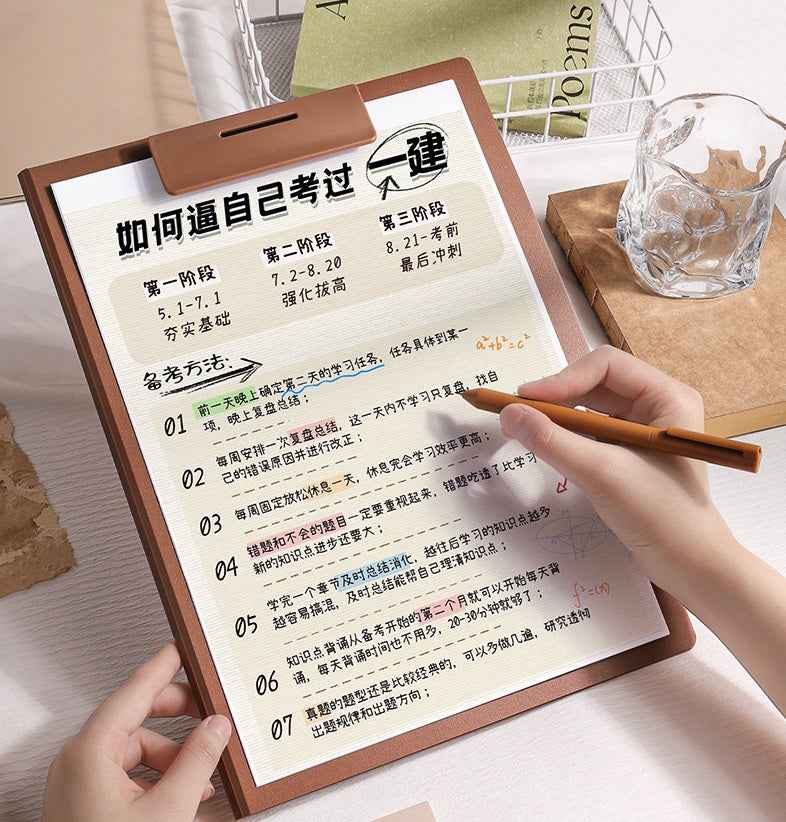 Poems
如何逼自己考过一建
第一阶段
5.1-7.1
夯实基础
第二阶段
7.2-8.20
强化拔高
第三阶段
8.21-考前
最后冲刺
备考方法:
01 前一天晚上确定第二天的学习任务，任务具体到某一
项，晚上复盘总结；
a²+b²=c²
02 每周安排一次复盘总结，这一天内不学习只复盘，找自
己的错误原因并进行改正；
03 每周固定放松休息一天，休息完会学习效率更高；
04 错题和不会的题目一定要重视起来，错题吃透了比学习
新的知识点进步还要大；
05 学完一个章节及时总结消化，越往后学习的知识点越多
越容易搞混，及时总结能帮自己理清知识点；
06 知识点背诵从备考开始的第二个月就可以开始每天背
诵，每天背诵时间也不用多，20-30分钟就够了；
07 真题的题型还是比较经典的，可以多做几遍，研究透彻
出题规律和出题方向；